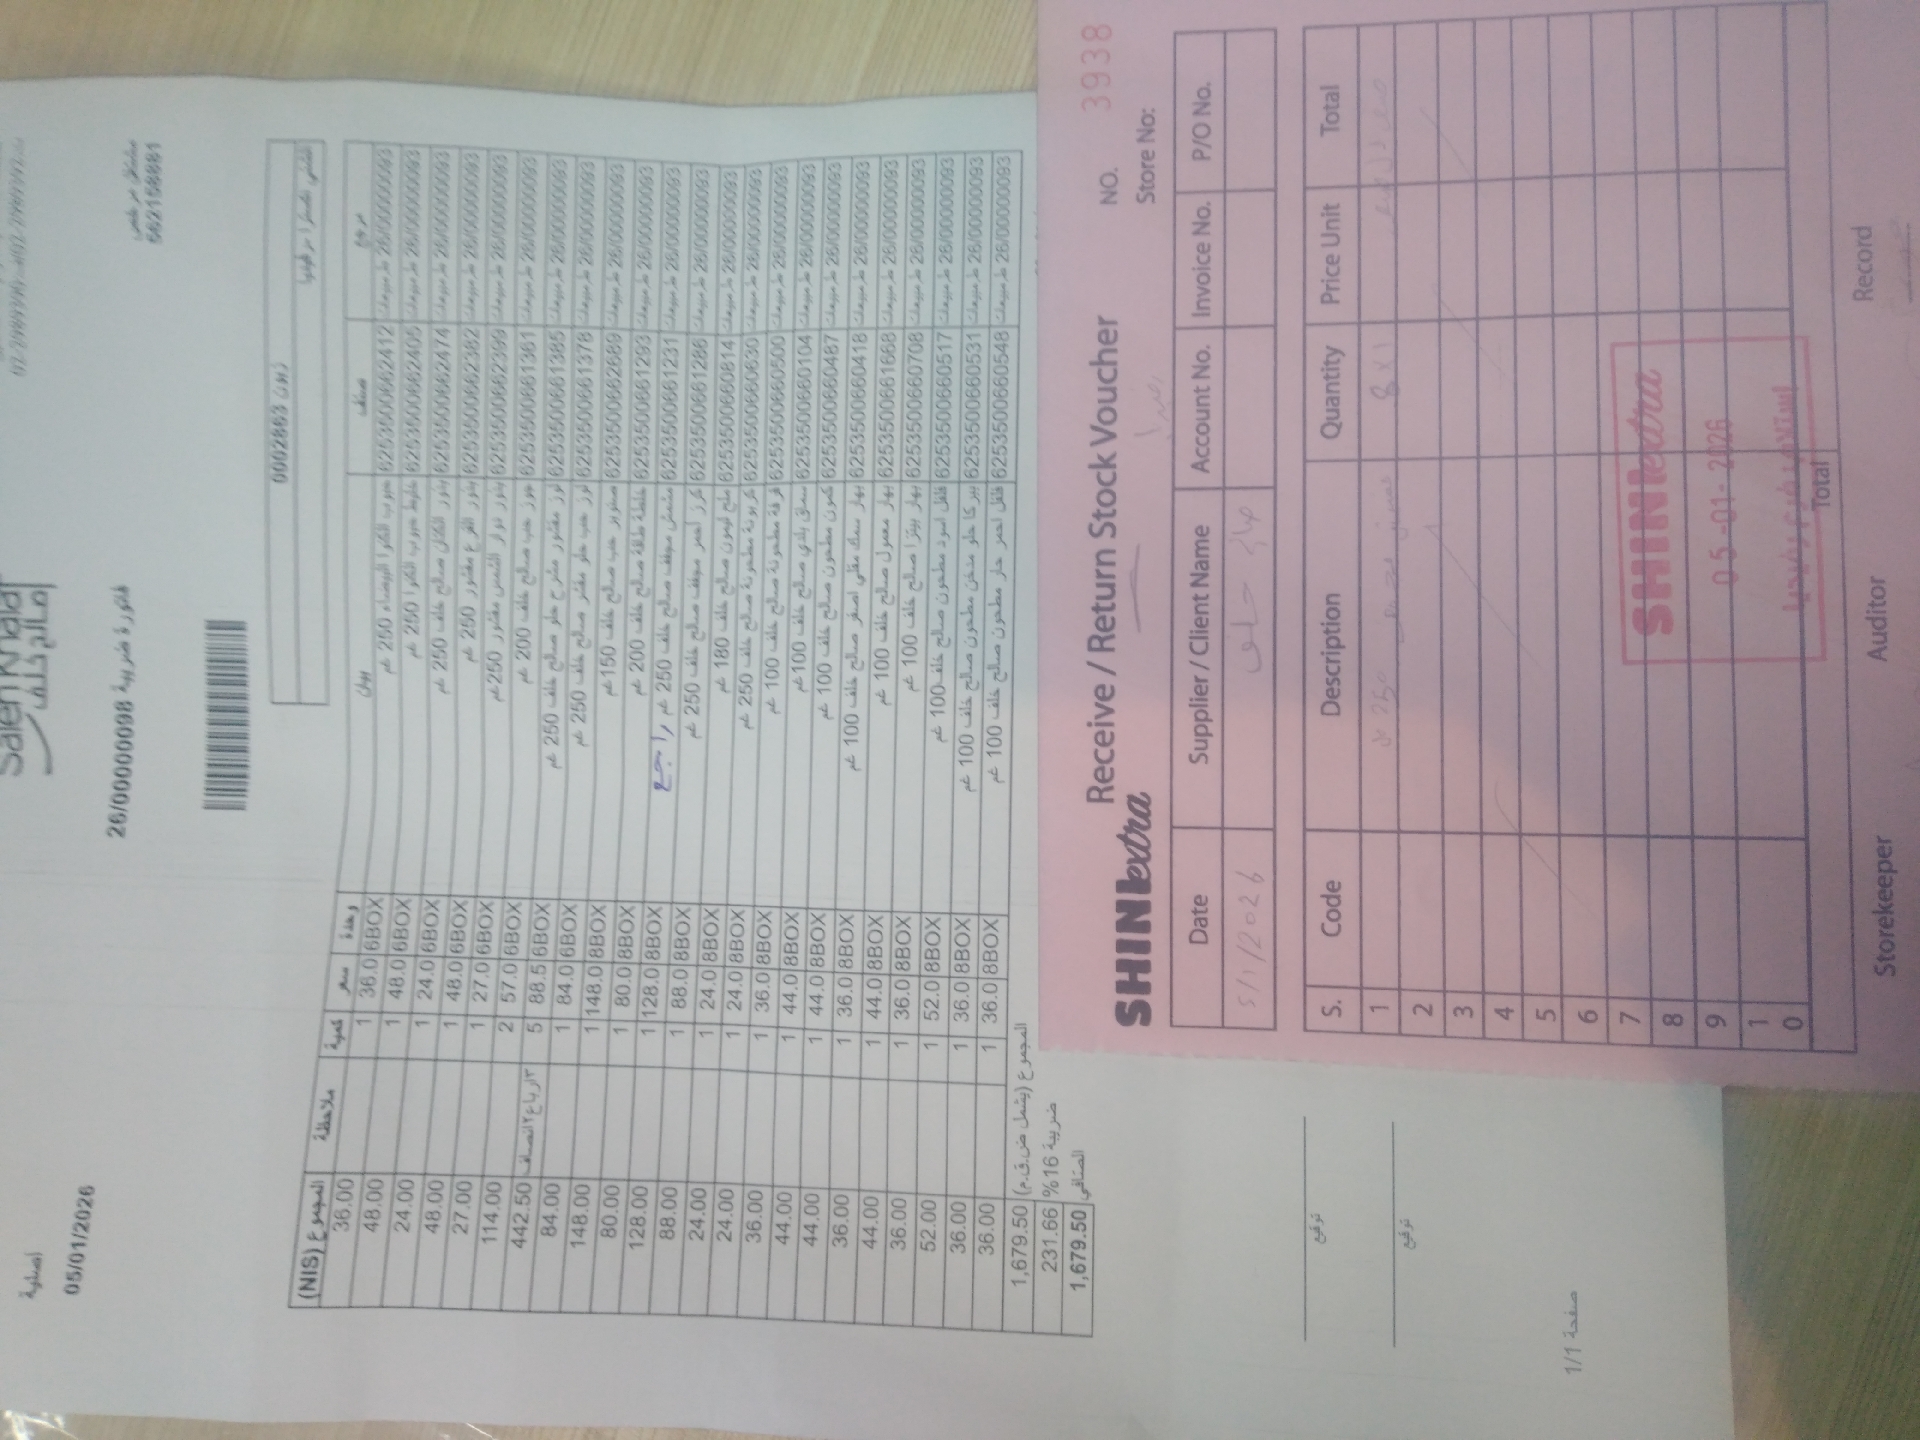 Saleh Khalaf
صالح خلف
أصلية
05/01/2026
فاتورة ضريبية 26/00000098
562168881
زبون 0002863
المجموع (NIS) ملاحظة كمية سعر وحدة بيان صنف مرجع
36.00 1 36.0 6BOX حبوب الكنوا البيضاء 250 غم 6253500662412 26/00000093
48.00 1 48.0 6BOX خليط حبوب الكنوا 250 غم 6253500662405 26/00000093
24.00 1 24.0 6BOX بذور الكتان صالح خلف 250 غم 6253500662474 26/00000093
48.00 1 48.0 6BOX بذور القرع مقشور 250 غم 6253500662382 26/00000093
27.00 1 27.0 6BOX بذور نوار الشمس مقشور 250 غم 6253500662399 26/00000093
114.00 2 57.0 6BOX جوز حب صالح خلف 200 غم 6253500661361 26/00000093
442.50 5 88.5 6BOX لوز مقشور مشرح حلو صالح خلف 250 غم 6253500661385 26/00000093
84.00 1 84.0 6BOX لوز حب حلو مقشر صالح خلف 250 غم 6253500661378 26/00000093
148.00 1 148.0 8BOX صنوبر حب صالح خلف 150 غم 6253500662689 26/00000093
80.00 1 80.0 8BOX خلطة طاقة صالح خلف 200 غم 6253500661293 26/00000093
128.00 1 128.0 8BOX مشمش مجفف صالح خلف 250 غم راجع 6253500661231 26/00000093
88.00 1 88.0 8BOX كرز أحمر مجفف صالح خلف 250 غم 6253500661286 26/00000093
24.00 1 24.0 8BOX ملح ليمون صالح خلف 180 غم 6253500660814 26/00000093
24.00 1 24.0 8BOX كربونة مطحونة صالح خلف 250 غم 6253500660630 26/00000093
36.00 1 36.0 8BOX قرفة مطحونة صالح خلف 100 غم 6253500660500 26/00000093
44.00 1 44.0 8BOX سماق بلدي صالح خلف 100 غم 6253500660104 26/00000093
44.00 1 44.0 8BOX كمون مطحون صالح خلف 100 غم 6253500660487 26/00000093
36.00 1 36.0 8BOX بهار سمك مقلي اصفر صالح خلف 100 غم 6253500660418 26/00000093
44.00 1 44.0 8BOX بهار معمول صالح خلف 100 غم 6253500661668 26/00000093
36.00 1 36.0 8BOX بهار بيتزا صالح خلف 100 غم 6253500660708 26/00000093
52.00 1 52.0 8BOX فلفل اسود مطحون صالح خلف 100 غم 6253500660517 26/00000093
36.00 1 36.0 8BOX ببركا حلو مدخن مطحون صالح خلف 100 غم 6253500660531 26/00000093
36.00 1 36.0 8BOX فلفل احمر حار مطحون صالح خلف 100 غم 6253500660548 26/00000093
1,679.50 المجموع (يشمل ض.ق.م)
231.66 ضريبة 16 %
1,679.50 الصافي
توقيع
توقيع
صفحة 1/1
Receive / Return Stock Voucher NO. 3938
SHINIextra
Store No:
Date Supplier / Client Name Account No. Invoice No. P/O No.
5/1/2026 صالح خلف
S. Code Description Quantity Price Unit Total
1 مشمش مجفف 250 غ 8x1
2
3
4
5
6
7
8
9
10
Total
SHINIextra
05-01-2026
Storekeeper Auditor Record